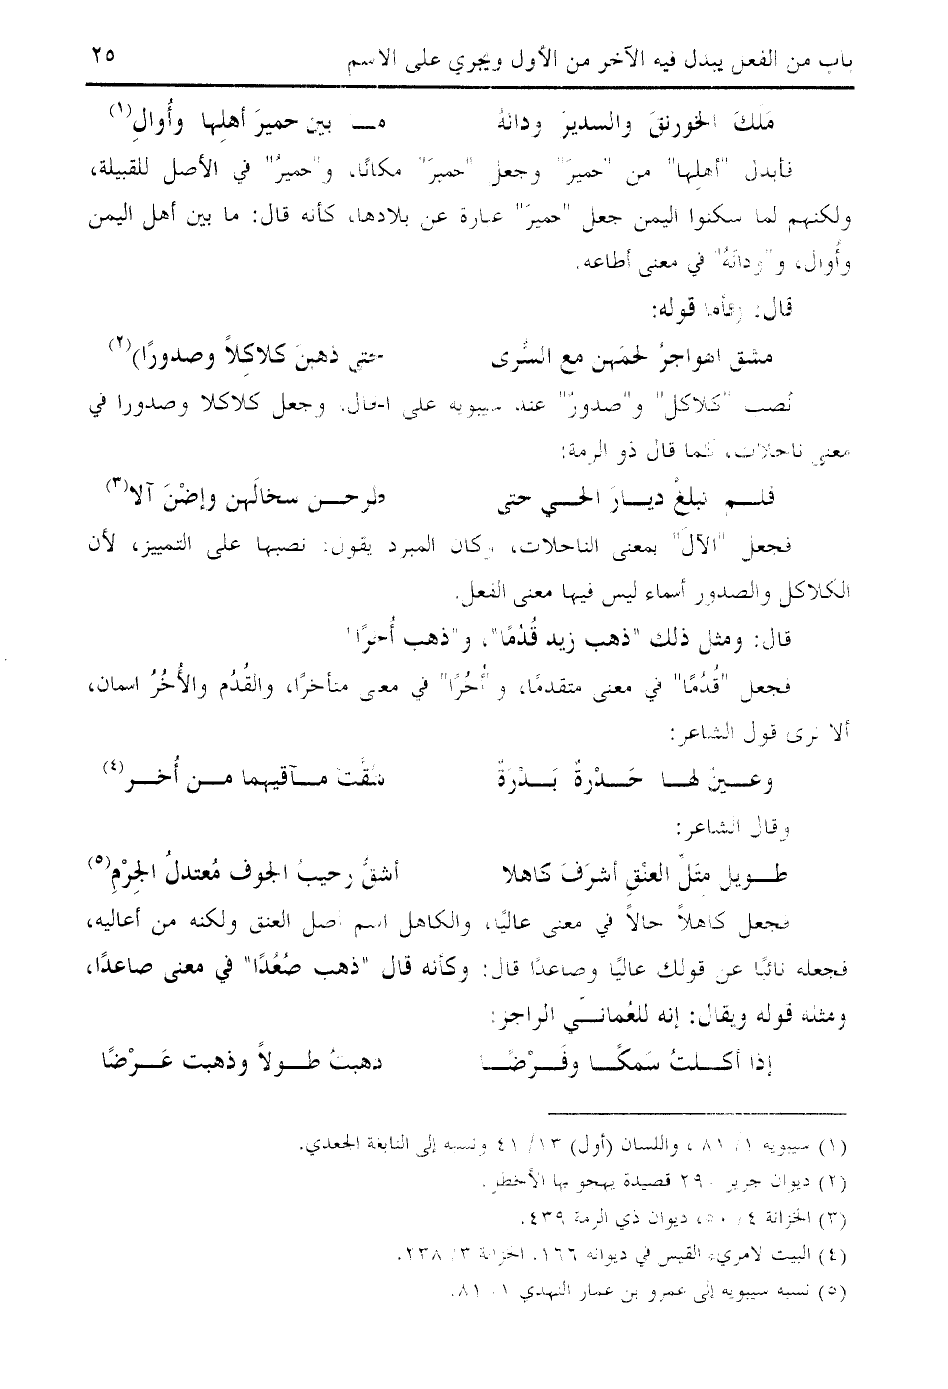 باب من الفعل يبدل فيه الآخر من الأول ويجري على الاسم ٢٥
مَلَكَ الخورنقَ والسديرَ ودانهُ مـا بين حميرَ أهلِها وأُوالِ(١)
فأبدل "أهلِها" من "حميرَ" وجعل "حميرَ" مكانًا، و"حميرُ" في الأصل للقبيلة،
ولكنهم لما سكنوا اليمن جعل "حميرَ" عبارة عن بلادها، كأنه قال: ما بين أهل اليمن
وأُوال، و"ودانَهُ" في معنى أطاعه.
قال: وأما قوله:
مشق الهواجرُ لحمَهن مع السُّرى حتى ذهبنَ كلاكلاً وصدورًا)(٢)
نُصب "كلاكل" و"صدورٌ" عند سيبويه على الحال. وجعل كلاكلا وصدورا في
معنى ناحلات، كما قال ذو الرمة:
فلـــم نبلغْ ديــارَ الحـــي حتى طرحـــن سخالَهن وإضْنَ آلا(٣)
فجعل "الآلَ" بمعنى الناحلات، وكان المبرد يقول: نصبها على التمييز، لأن
الكلاكل والصدور أسماء ليس فيها معنى الفعل.
قال: ومثل ذلك "ذهب زيد قُدُمًا"، و"ذهب أُخرًا"
فجعل "قُدُمًا" في معنى متقدمًا، و"أُخُرًا" في معنى متأخرًا، والقُدُم والأُخُرُ اسمان،
ألا ترى قول الشاعر:
وعـــينٌ لهـــا حَـــدْرةٌ بَـــدْرَةٌ شُقَّت مـــآقيهما مـــن أُخـــر(٤)
وقال الشاعر:
طـــويل مِتَلِّ العنْقِ أشرَفَ كاهلا أشقُّ رحيبُ الجوف مُعتدلُ الجِرْمِ(٥)
فجعل كاهلاً حالاً في معنى عاليًا، والكاهل اسم أصل العنق ولكنه من أعاليه،
فجعله نائبًا عن قولك عاليًا وصاعدًا قال: وكأنه قال "ذهب صُعُدًا" في معنى صاعدًا،
ومثله قوله ويقال: إنه للعُمانـــي الراجز:
إذا أكـــلتُ سمكًـــا وفَـــرْضَـــا ذهبتُ طـــولاً وذهبت عَـــرْضًا
(١) سيبويه ١/ ٨١، واللسان (أول) ١٣/ ٤١ ونسبه إلى النابغة الجعدي.
(٢) ديوان جرير ٢٩٠ قصيدة يهجو بها الأخطل.
(٣) الخزانة ٤/ ٥٠، ديوان ذي الرمة ٤٣٩.
(٤) البيت لامرىء القيس في ديوانه ١٦٦، الخزانة ٣/ ٢٣٨.
(٥) نسبه سيبويه إلى عمرو بن عمار النهدي ١/ ٨١.